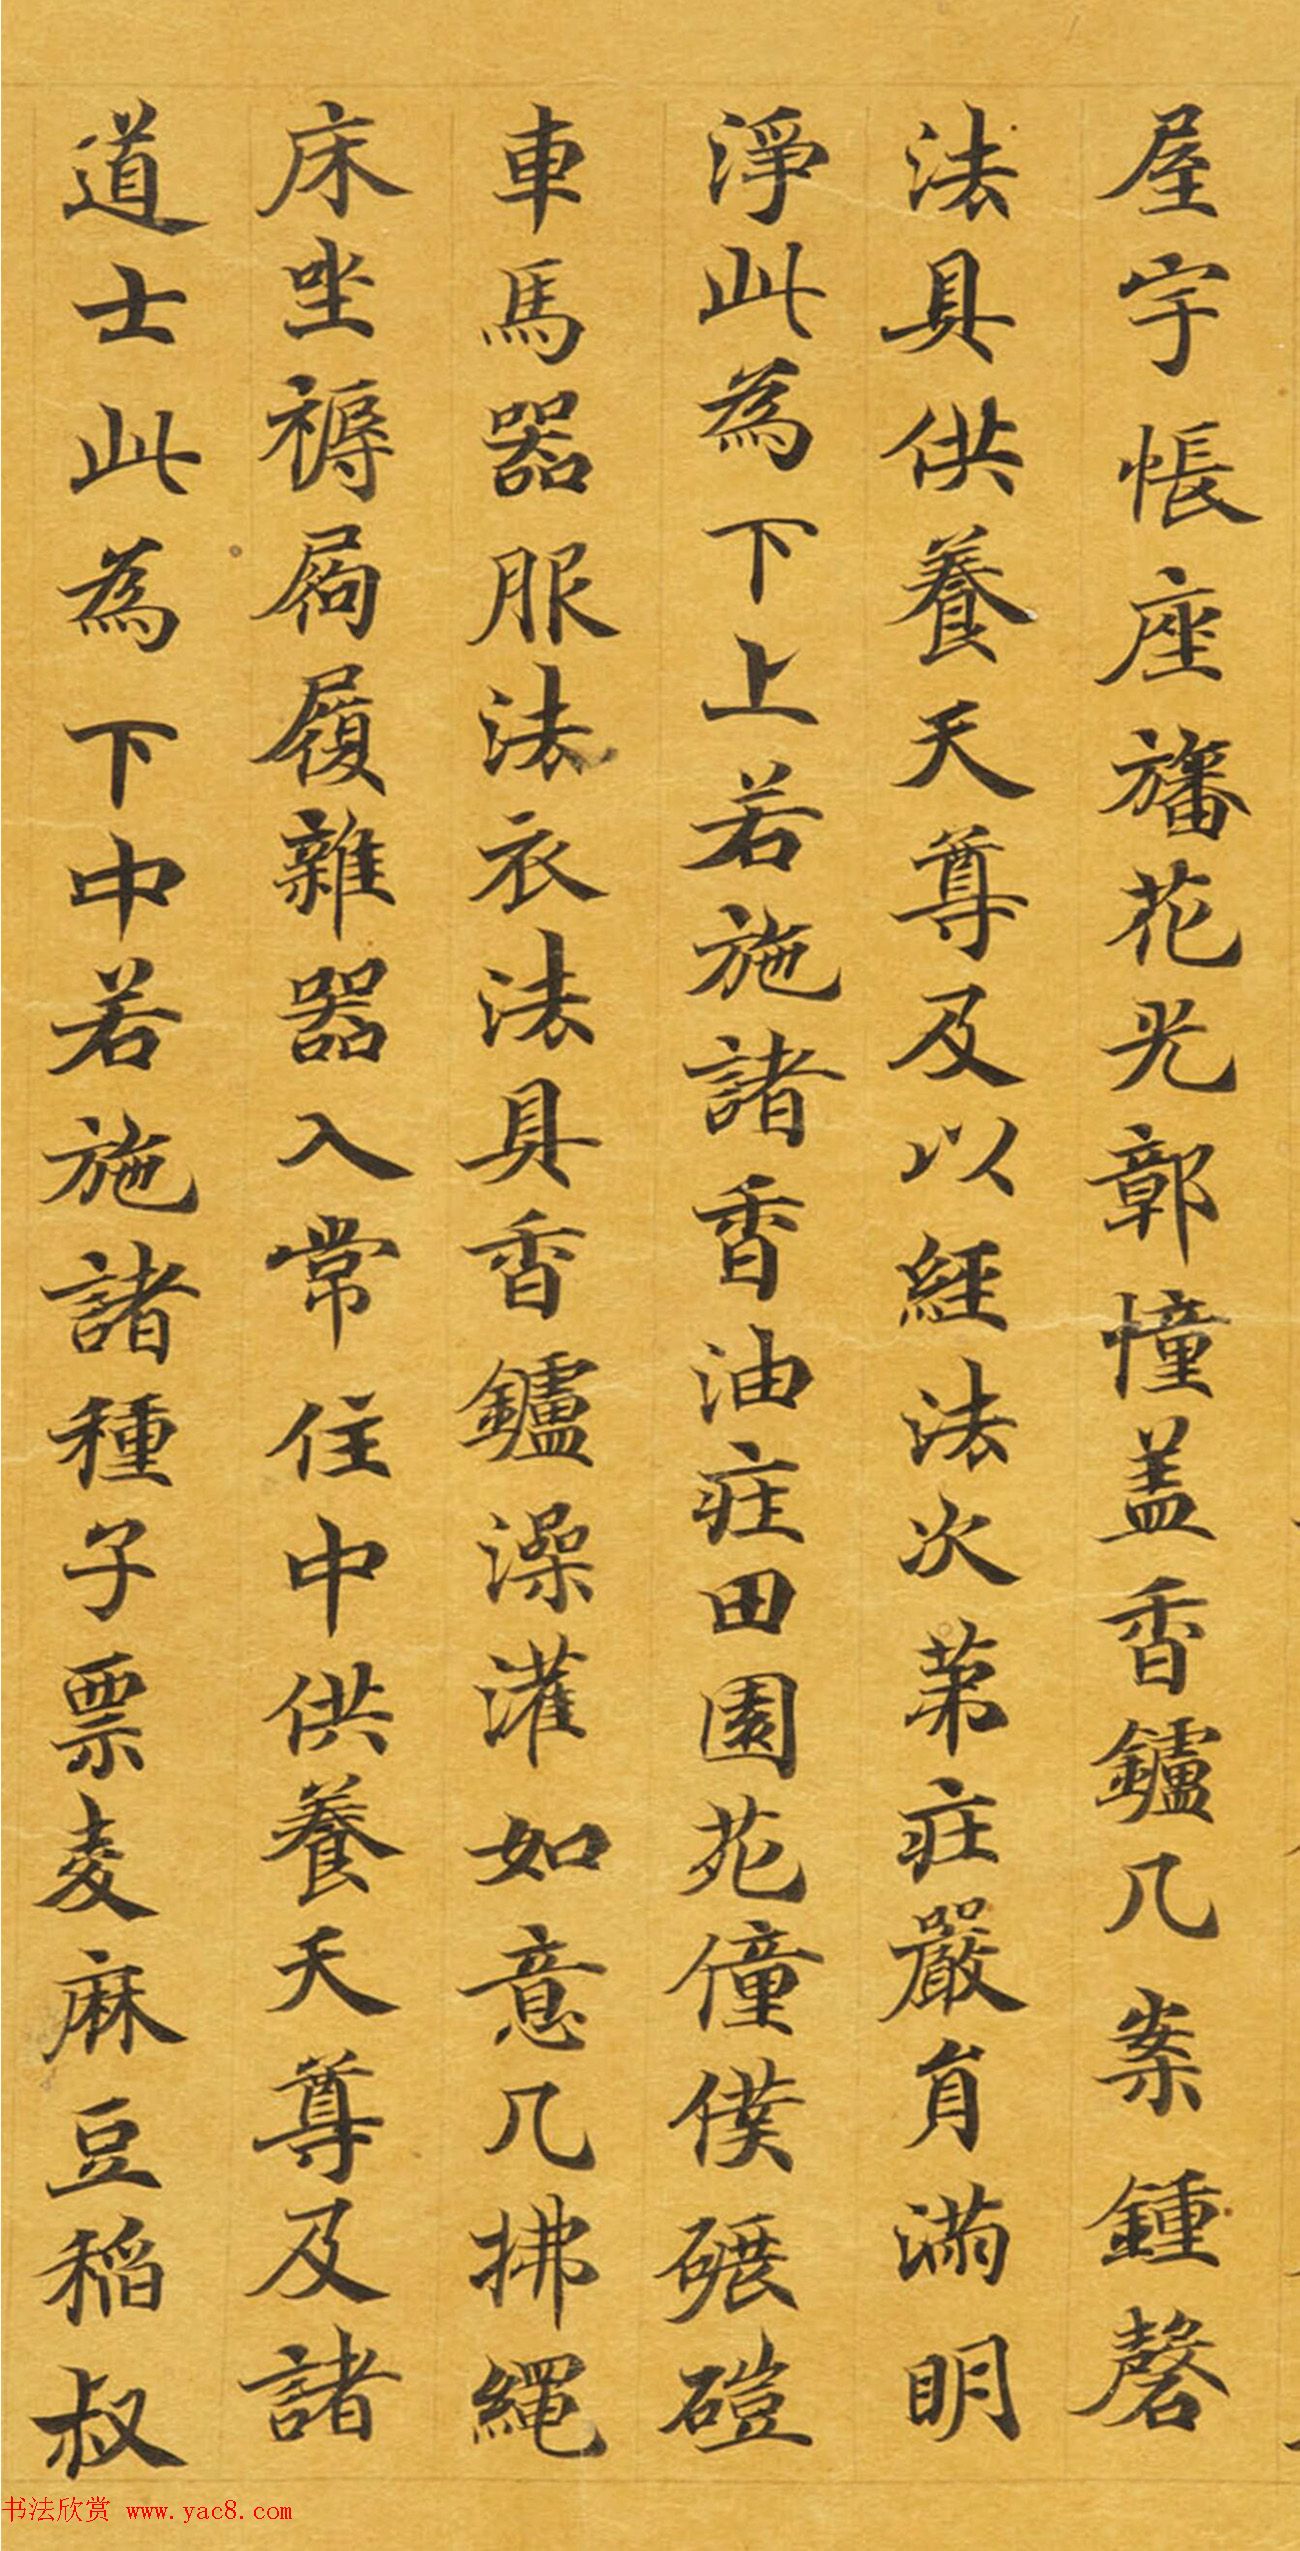 屋宇帳座旛花光鄣幢盖香鑪几案鍾磬
法具供養天尊及以經法次苐庄嚴貟滿明
淨此為下上若施諸香油庄田園苑僮僕碾磑
車馬器服法衣法具香鑪澡灌如意几拂繩
床坐褥屩履雜器入常住中供養天尊及諸
道士此為下中若施諸種子粟麦麻豆稻叔
书法欣赏 www.yac8.com